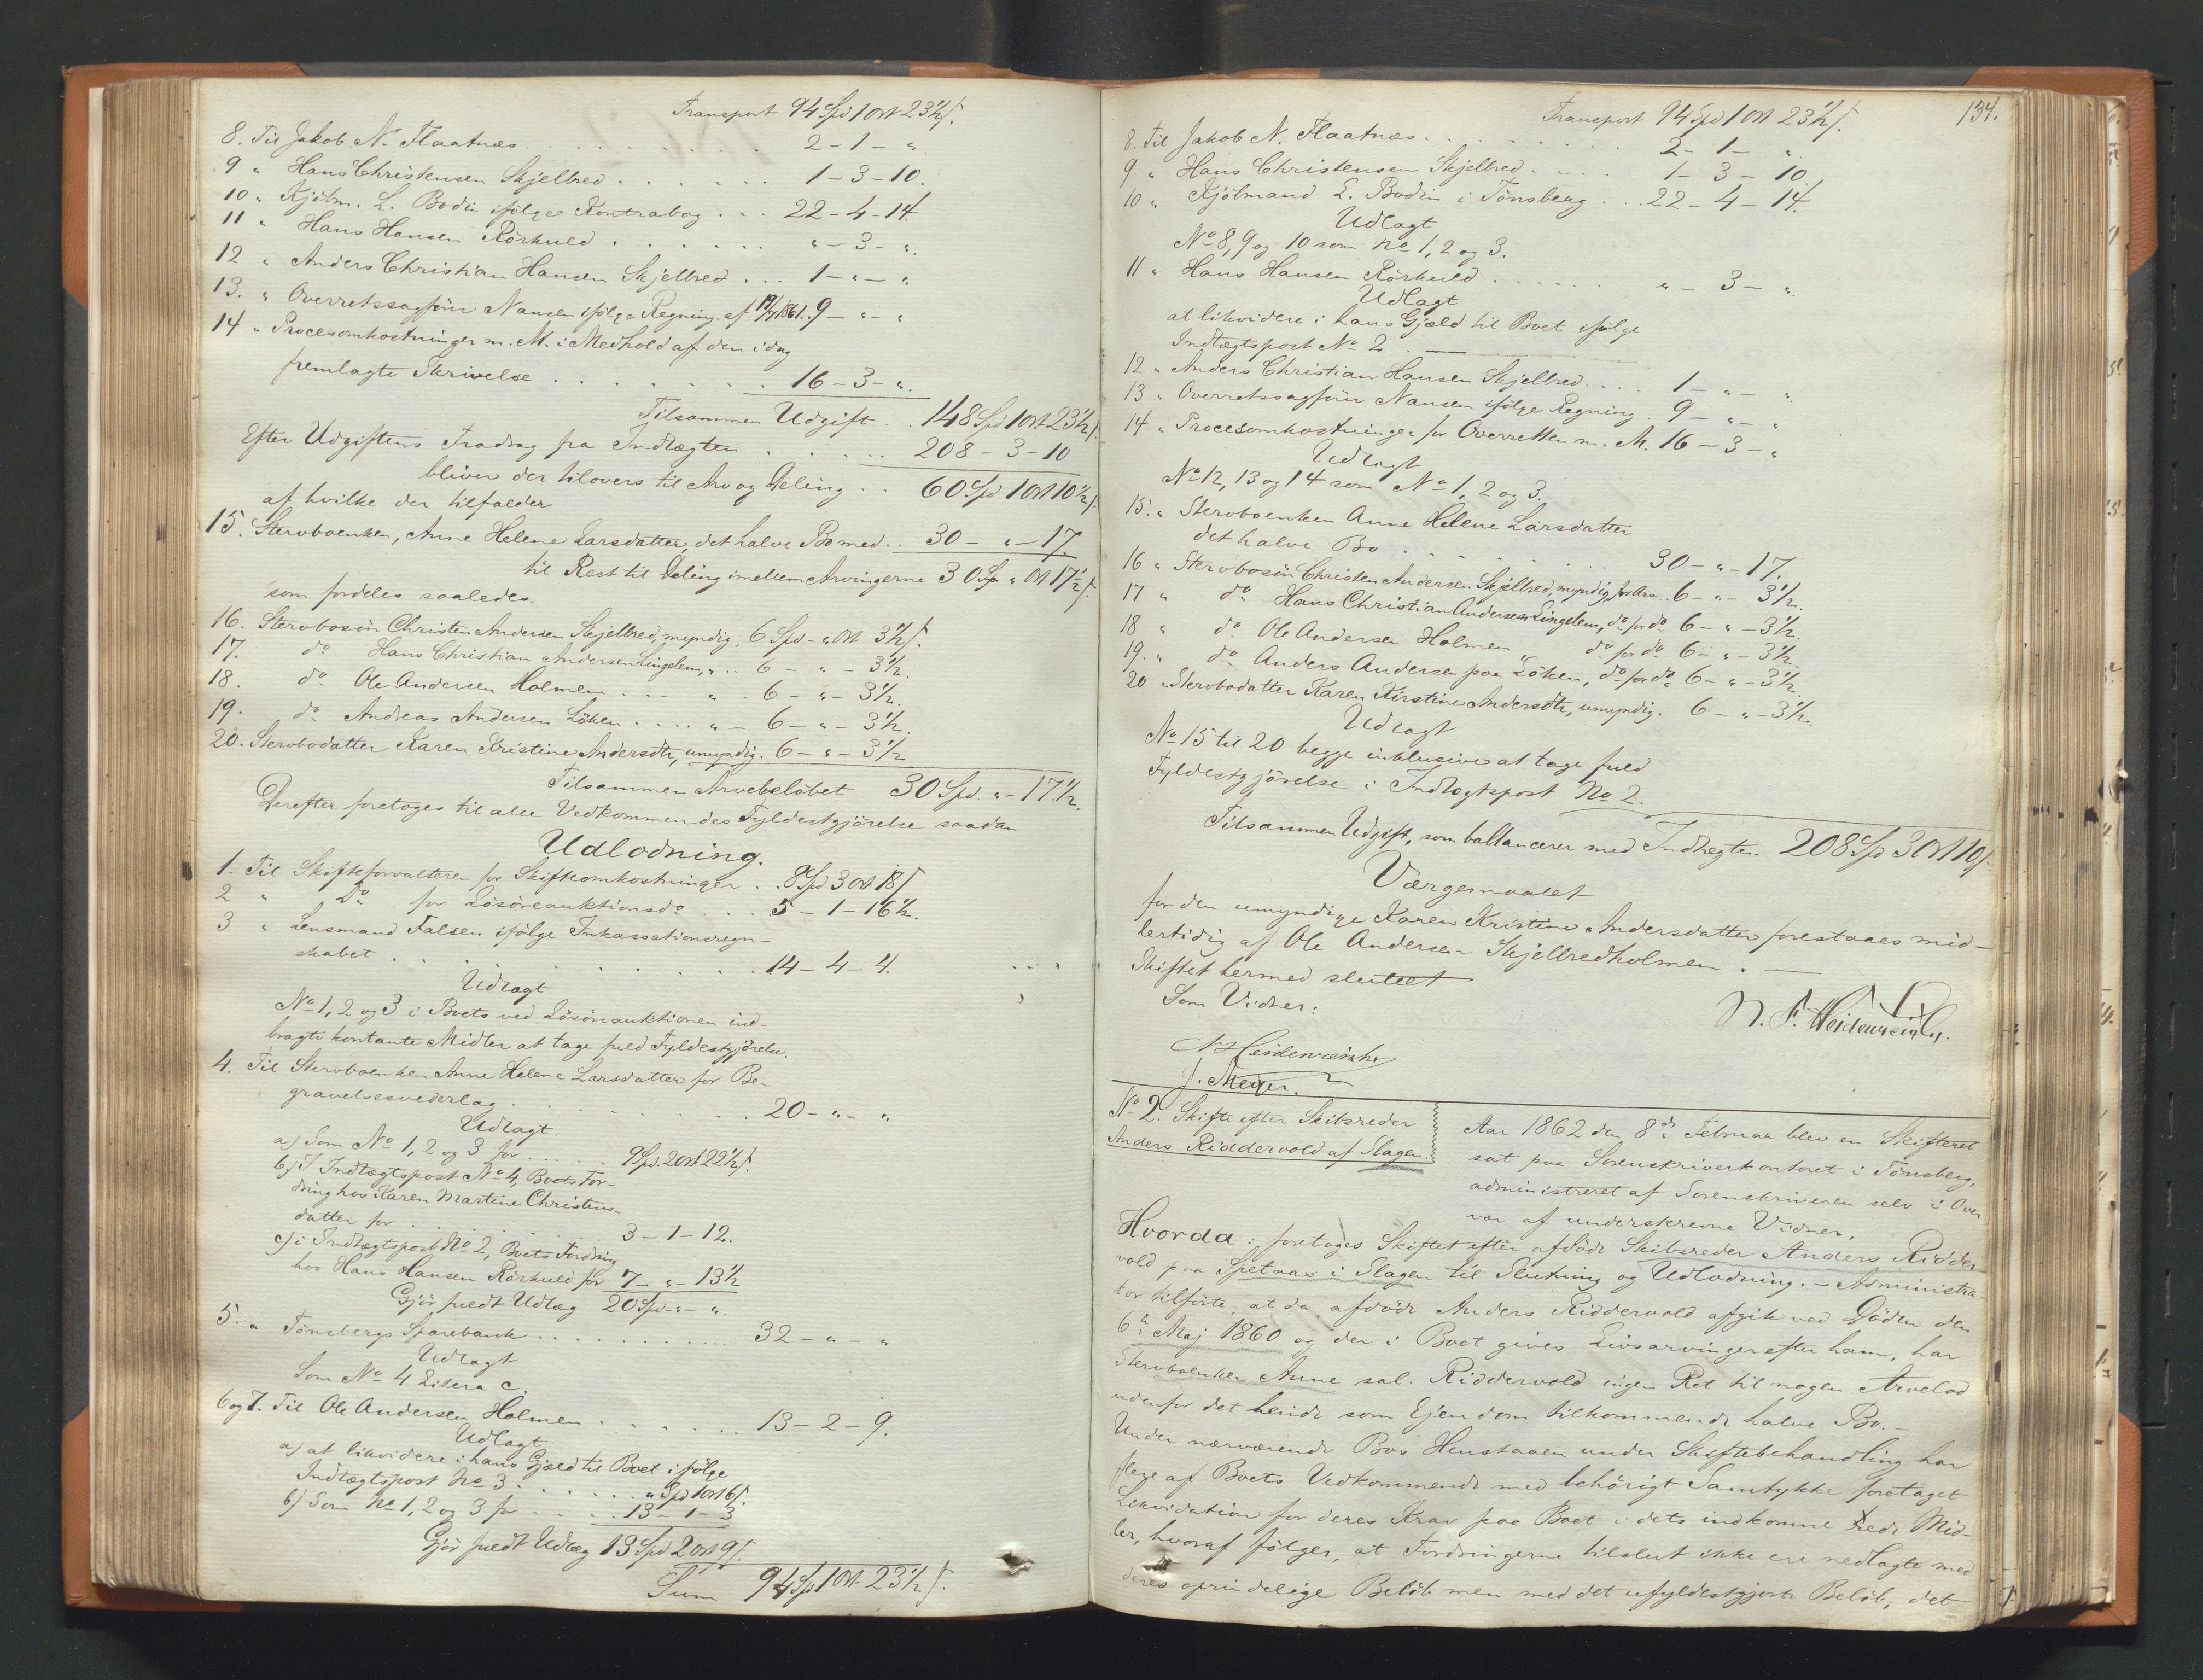 Transport 94 Spd 1 ort 23 1/2 ſ.
8. Til Jakob N. Flaatnæs . . . 2 - 1 - "
9 " Hans Christensen Skjelbred . . . 1 - 3 - 10.
10 " Kjöbm. L. Bodin ifölge Kontrabog . . . 22 - 4 - 14.
11 " Hans Hansen Rörkuld . . . " - 3 - ".
12 " Anders Christian Hansen Skjelbred . . . 1 - " - "
13. " Overretssagförer Nansen ifölge Regning af 19/7 1861. 9 - " - "
14 " Procesomkostninger m. M. i Medhold af den idag
fremlagte Skrivelse . . . 16 - 3 - ".
Tilsammen Udgift . 148 Spd 1 ort 23 1/2 ſ.
Efter Udgiftens Fradrag fra Indtægten . . . 208 - 3 - 10
bliver der tilovers til Arv og Deling . . 60 Spd 1 ort 10 1/2 ſ.
af hvilke der tilfalder
15. Stervboenken, Anne Helene Larsdatter, det halve Bo med . . 30 - " - 17
til Rest til Deling imellem Arvingerne 30 Sp " ort 17 1/2 ſ.
som fordeles saaledes.
16. Stervbosön Christen Andersen Skjelbred, myndig, 6 Spd - " ort 3 1/2 ſ.
17. do Hans Christian Andersen Lingelem, " . . 6 - " - 3 1/2.
18. do Ole Andersen Holmen . . . " - 6 - " - 3 1/2.
19. do Andreas Andersen Löken . . . " - 6 - " - 3 1/2.
20. Stervbodatter Karen Kristine Andersdtr, umyndig. 6 - " - 3 1/2
Tilsammen Arvebelöbet 30 Spd. " - 17 1/2.
Derefter foretoges til alle Vedkommendes Fyldestgjörelse saadan
Udlodning.
1. Til Skifteforvalteren for Skifteomkostninger . . 8 Spd 3 ort 18 ſ
2 " do for Lösöreauktionsdo . . . 5 - 1 - 16 1/2.
3 " Lensmand Falsen ifölge Inkassationsregn-
skabet . . . 14 - 4 - 4.
Udlagt
No 1, 2 og 3 i Boets ved Lösöreauktionen ind-
bragte kontante Midler at tage fuld Fyldestgjörelse.
4. Til Stervboenken Anne Helene Larsdatter for Be-
gravelsesvederlag . . . 20 - " - "
Udlagt.
a) Som No 1, 2 og 3 for . . . 9 Spd. 2 ort 22 1/2 ſ.
b) I Indtægtspost No 4, Boets For-
dring hos Karen Martine Christens-
datter for . . . 3 - 1 - 12.
c) i Indtægtspost No 2, Boets Fordring
hos Hans Hansen Rörkuld for 7 - " - 13 1/2
Gjör fuldt Udlæg 20 Spd - " - ".
5. " Tönsbergs Sparebank . . . 32 - " - "
Udlagt
Som No 4 Litera c.
6 og 7. Til Ole Andersen Holmen . . . 13 - 2 - 9.
Udlagt
a) at likvidere i hans Gjæld til Boet ifölge
Indtægtspost No 3 . . . " Spd 1 ort 6 ſ.
b) Som No 1, 2 og 3 for . . . 13 - 1 - 3
Gjör fuldt Udlæg 13 Spd 2 ort 9 ſ.
Sum 94 Sp 1 ort 23 1/2 ſ.
134.
Transport 94 Spd 1 ort 23 1/2 ſ.
8. Til Jakob N. Flaatnæs . . . 2 - 1 - "
9 " Hans Christensen Skjelbred . . . 1 - 3 - 10
10 " Kjöbmand L. Bodin i Tönsberg . . . 22 - 4 - 14.
Udlagt
No 8, 9 og 10 som No 1, 2 og 3.
11 " Hans Hansen Rörkuld . . . " - 3 - ".
Udlagt
at likvidere i hans Gjæld til Boet ifölge
Indtægtspost No 2. —
12 " Anders Christian Hansen Skjelbred . . . 1 - " - "
13 " Overretssagförer Nansen ifölge Regning 9 - " - "
14 " Procesomkostninger for Overretten m. M. 16 - 3 - "
Udlagt
No 12, 13 og 14 som No 1, 2 og 3.
15. " Stervboenken Anne Helene Larsdatter
det halve Bo . . . 30 - " - 17.
16 " Stervbosön Christen Andersen Skjelbred, myndig, for Arv . 6 - " - 3 1/2.
17 " do Hans Christian Andersen Lingelem, do for do 6 - " - 3 1/2.
18 " do Ole Andersen Holmen " do for do 6 - " - 3 1/2.
19. " do Anders Andersen paa Löken, do for do 6 - " - 3 1/2.
20 " Stervbodatter Karen Kirstine Andersdtr, umyndig. 6 - " - 3 1/2.
Udlagt
No 15 til 20 begge inklusive at tage fuld
Fyldestgjörelse i Indtægtspost No 2.
Tilsammen Udgift, som ballancerer med Indtægten 208 Spd 3 ort 10 ſ.
Værgemaalet
for den umyndige Karen Kristine Andersdatter forestaaes mid-
lertidig af Ole Andersen Skjelbredholmen. —
Skiftet hermed sluttet
Som Vidner:
N. F. Heidenreich.
N Heidenreich
J. Meyer.
No 2. Skifte efter Skibsreder
Anders Riddervold af Slagen.
Aar 1862 den 8de Februar blev en Skifteret
sat paa Sorenskriverkontoret i Tönsberg,
administreret af Sorenskriveren selv i Over
vær af underskrevne Vidner,
Hvorda: foretoges Skiftet efter afdöde Skibsreder Anders Ridder
vold paa Spetaas i Slagen til Slutning og Udlodning. — Administra
tor tilförte, at da afdöde Anders Riddervold afgik ved Döden den
6te Maj 1860 og der i Boet gives Livsarvinger efter ham, har
Stervboenken Anne sal. Riddervold ingen Ret til nogen Arvelod
udenfor det hende som Ejendom tilkommende halve Bo. —
Under nærværende Bos Henstaaen under Skiftebehandling har
flere af Boets Vedkommende med behörigt Samtykke foretaget
Likvidation for deres Krav paa Boet i dets indkomne rede Mid-
ler, hvoraf fölger, at Fordringerne tilslut ikke ere nedlagte med
deres oprindelige Belöb men med det ufyldestgjorte Belöb, det